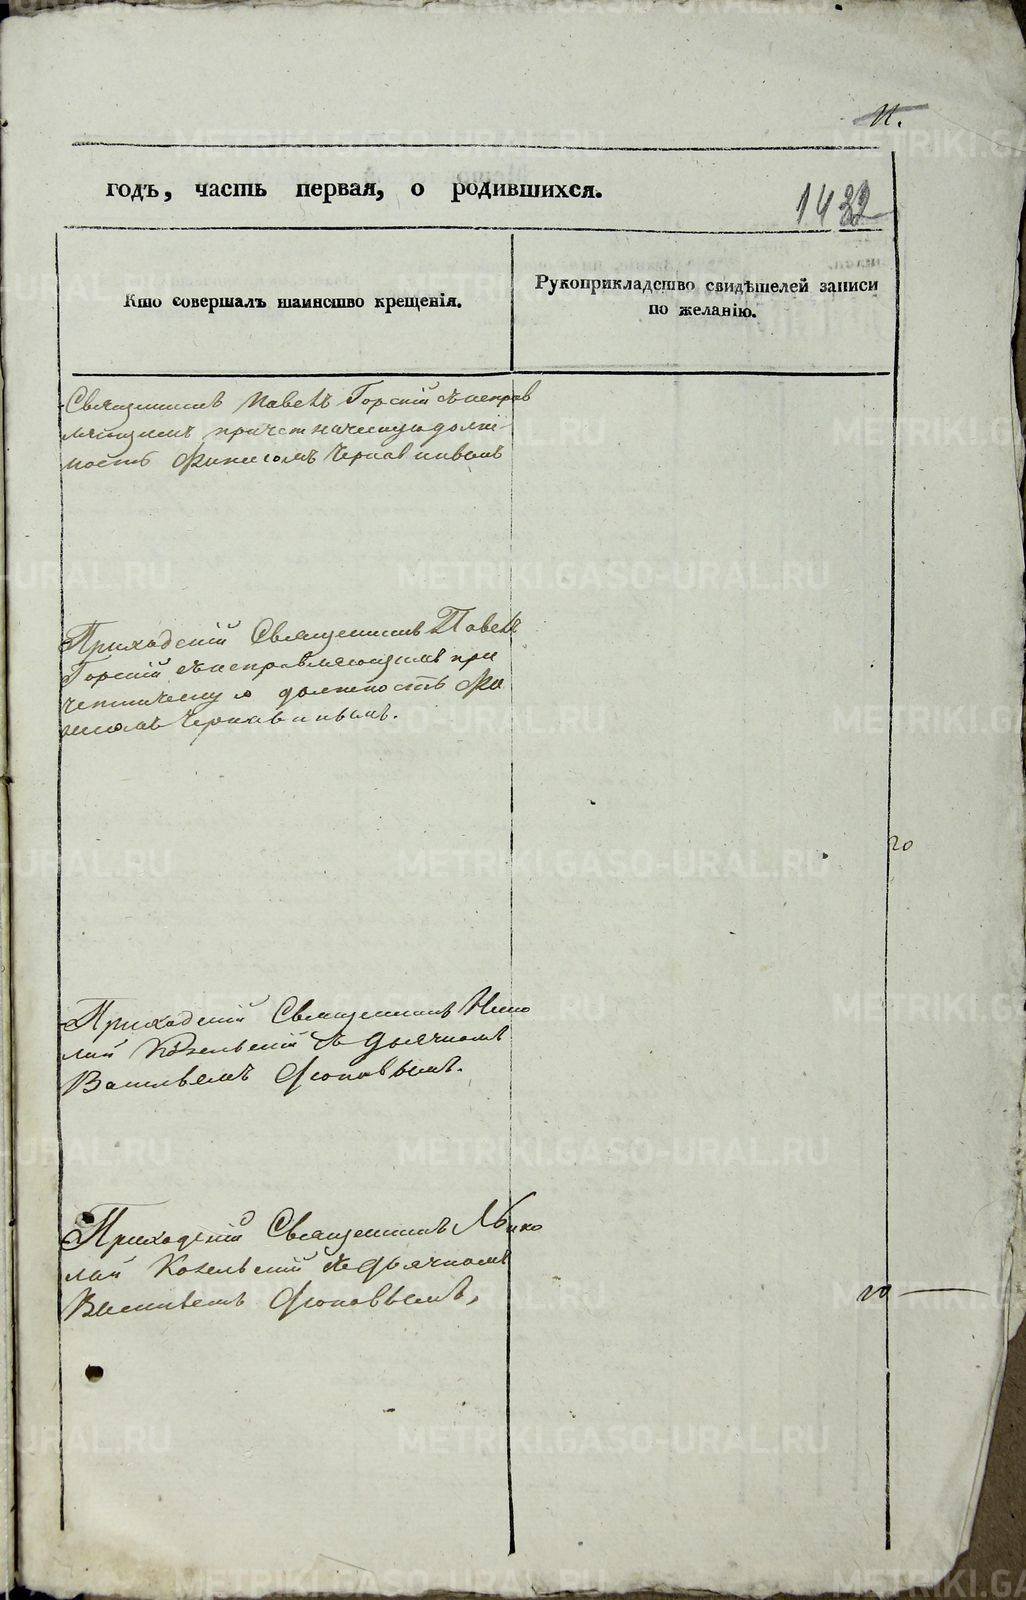 11.
годъ, часть первая, о родившихся.
1432
Кто совершалъ таинство крещенія.
Рукоприкладство свидѣтелей записи
по желанію.
Священникъ Павелъ Горскій съ исправ
ляющимъ причетническую долж
ность Финисомъ Чернавинымъ
Приходскій Священникъ Павелъ
Горскій съ исправляющимъ при
четническую должность Фи
нисомъ Чернавинымъ.
20
Приходскій Священникъ Нико
лай Козельскій съ Дьячкомъ
Васильемъ Флоповымъ.
Приходскій Священникъ Нико
лай Козельскій съ Дьячкомъ
Васильемъ Флоповымъ,
20
METRIKI.GASO-URAL.RU